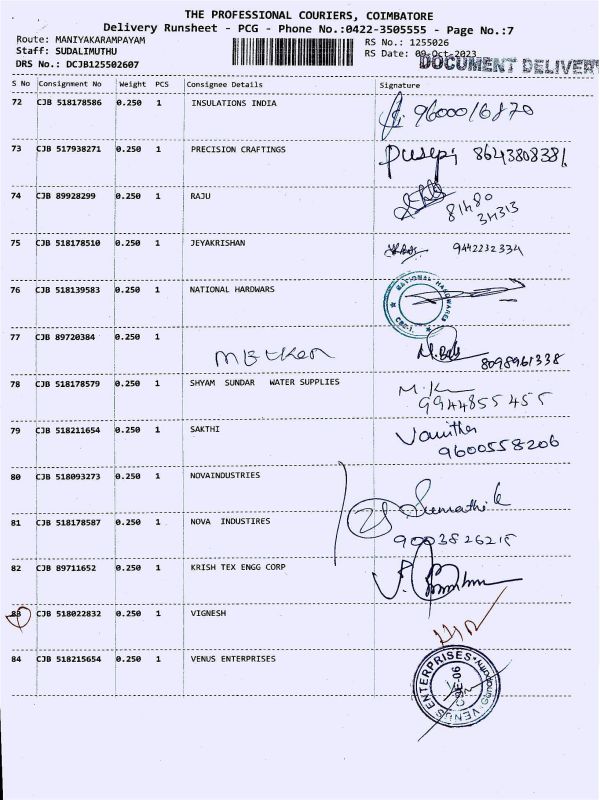 THE PROFESSIONAL COURIERS, COIMBATORE
Delivery Runsheet - PCG - Phone No.:0422-3505555 - Page No.:7
Route: MANIYAKARAMPAYAM RS No.: 1255026
Staff: SUDALIMUTHU RS Date: 09-Oct-2023
DRS No.: DCJB125502607 DOCUMENT DELIVERY
S No Consignment No Weight PCS Consignee Details Signature
72 CJB 518178586 0.250 1 INSULATIONS INDIA 9600016870
73 CJB 517938271 0.250 1 PRECISION CRAFTINGS 8643808381
74 CJB 89928299 0.250 1 RAJU 81480
34313
75 CJB 518178510 0.250 1 JEYAKRISHAN 9442232334
76 CJB 518139583 0.250 1 NATIONAL HARDWARS NATIONAL HARDWARES CBE-1.
77 CJB 89720384 0.250 1
8098961338
78 CJB 518178579 0.250 1 SHYAM SUNDAR WATER SUPPLIES
9944855455
79 CJB 518211654 0.250 1 SAKTHI Vanitha
9600558206
80 CJB 518093273 0.250 1 NOVAINDUSTRIES Sumathi k
81 CJB 518178587 0.250 1 NOVA INDUSTIRES
9003826215
82 CJB 89711652 0.250 1 KRISH TEX ENGG CORP
83 CJB 518022832 0.250 1 VIGNESH
84 CJB 518215654 0.250 1 VENUS ENTERPRISES VENUS ENTERPRISES